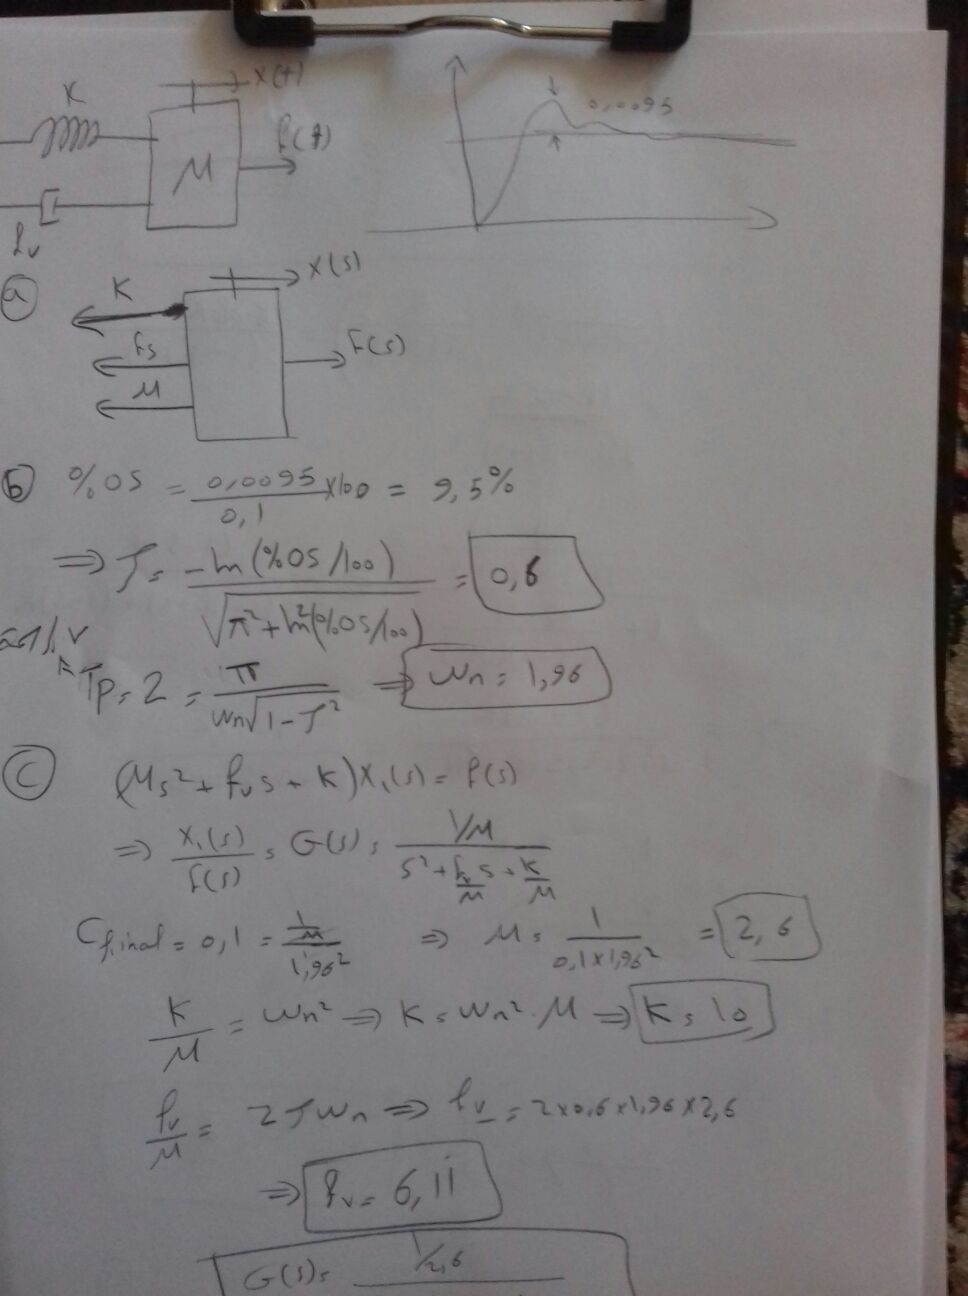 K
x(t)
M
f(t)
fv
0,0095
a
K
x(s)
fs
F(s)
M
b %OS = 0,0095/0,1 x100 = 9,5%
⇒ ζ = -ln(%OS/100)/√(π²+ln²(%OS/100)) = 0,6
Tp = 2 = π/(wn√(1-ζ²)) ⇒ wn = 1,96
C (Ms²+fvs+K)X₁(s) = f(s)
⇒ X₁(s)/f(s) = G(s) = (1/M)/(s²+(fv/M)s+K/M)
Cfinal = 0,1 = (1/M)/1,96² ⇒ M = 1/(0,1x1,96²) = 2,6
K/M = wn² ⇒ K = wn².M ⇒ K = 10
fv/M = 2ζwn ⇒ fv = 2x0,6x1,96x2,6
⇒ fv = 6,11
G(s) = 1/2,6